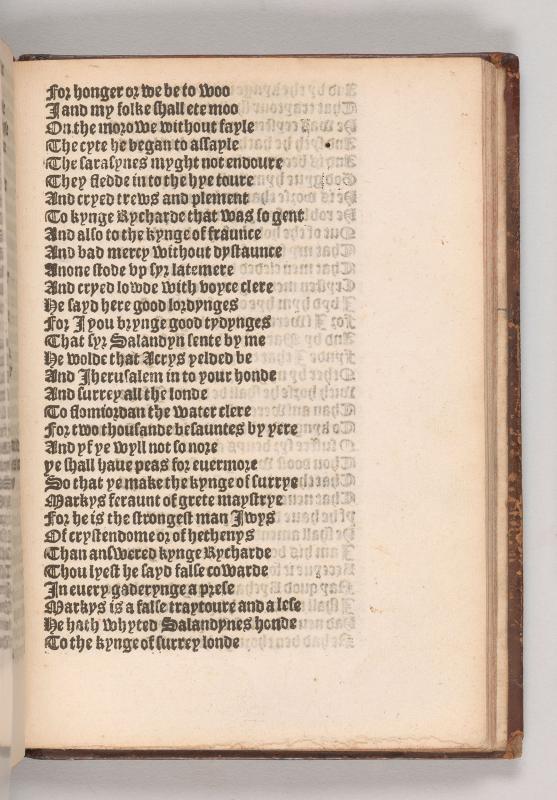 For honger or we be to woo
I and my folke shall ete moo
On the morowe without fayle
The cyte he began to assayle
The sarasynes myght not endoure
They fledde in to the hye toure
And cryed trews and plement
To kynge Rycharde that was so gent
And also to the kynge of fraunce
And bad mercy without dystaunce
Anone stode vp syr latemere
And cryed lowde with voyce clere
He sayd here good lordynges
For I you brynge good tydynges
That syr Salandyn sente by me
He wolde that Acrys yelded be
And Iherusalem in to your honde
And surrey all the londe
To flomiordan the water clere
For two thousande besauntes by yere
And yf ye wyll not so nore
ye shall haue peas for euermore
So that ye make the kynge of surrye
Markys feraunt of grete maystrye
For he is the strongest man Iwys
Of crystendome or of hethenys
Than answered kynge Rycharde
Thou lyest he sayd false cowarde
In euery gaderynge a prese
Markys is a false traytoure and a lese
He hath whyted Salandynes honde
To the kynge of surrey londe